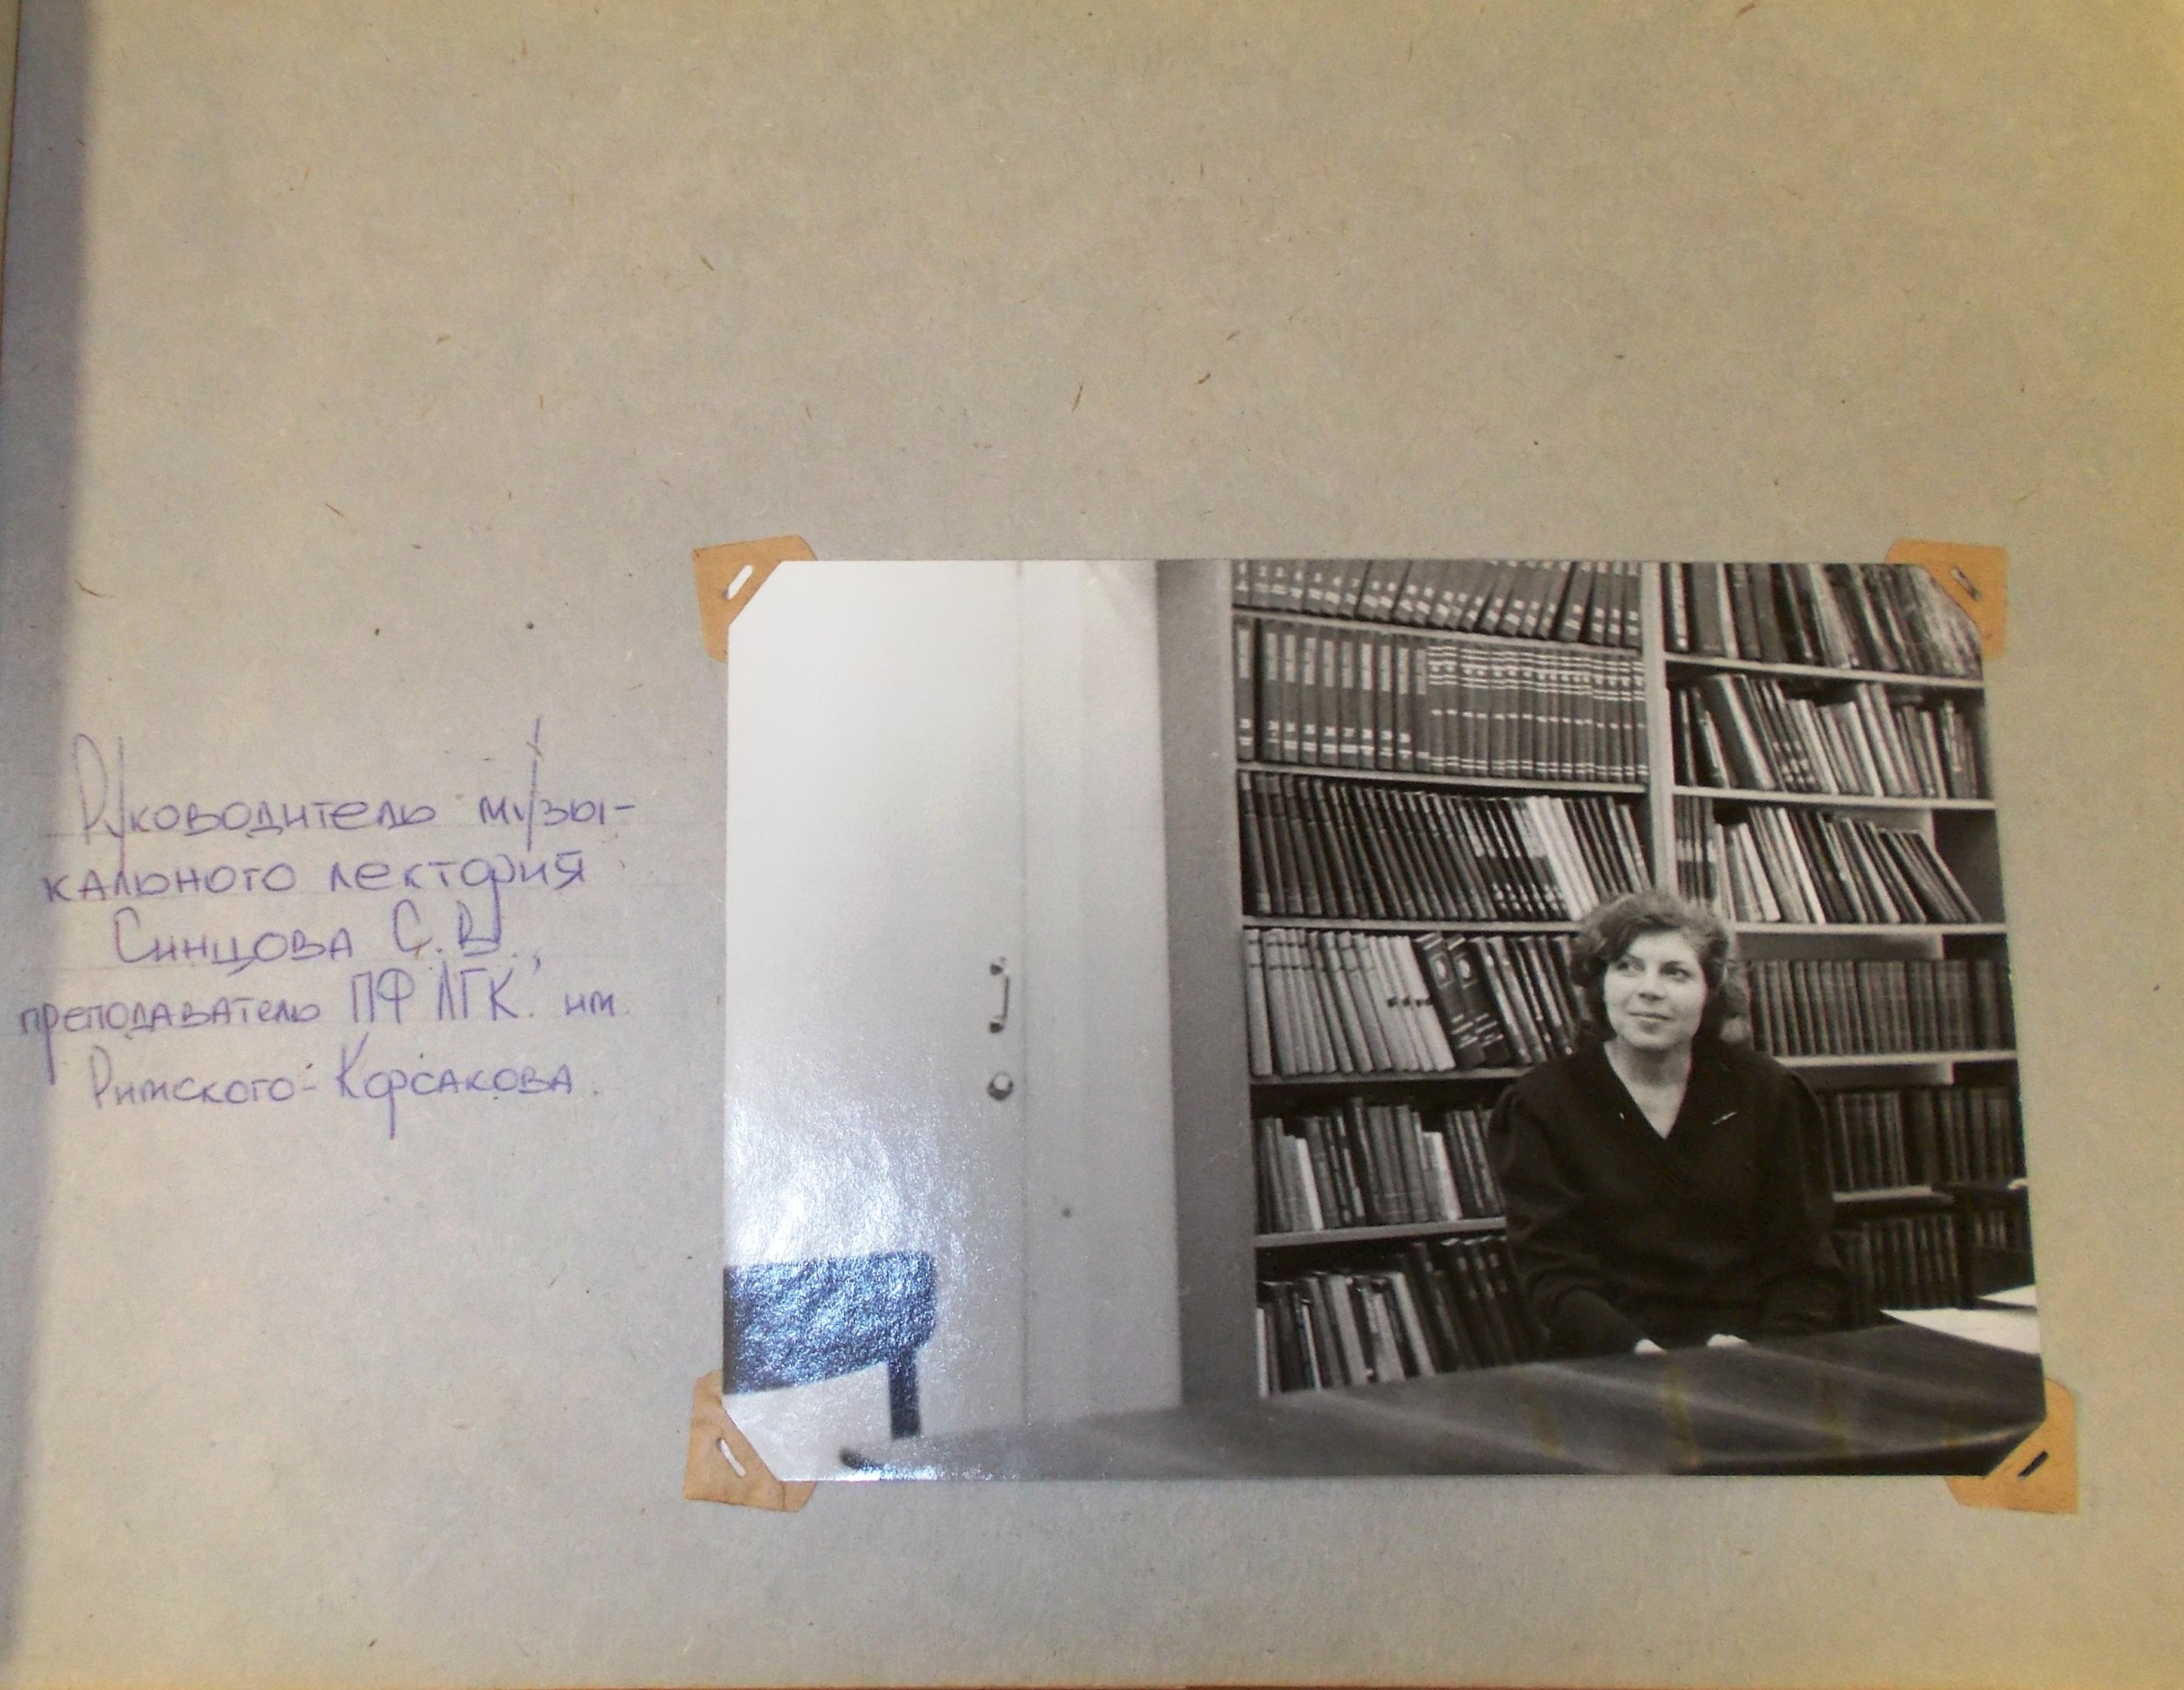 Руководитель музы-
кального лектория
Синцова С.В.,
преподаватель ПФ ЛГК. им.
Римского-Корсакова.